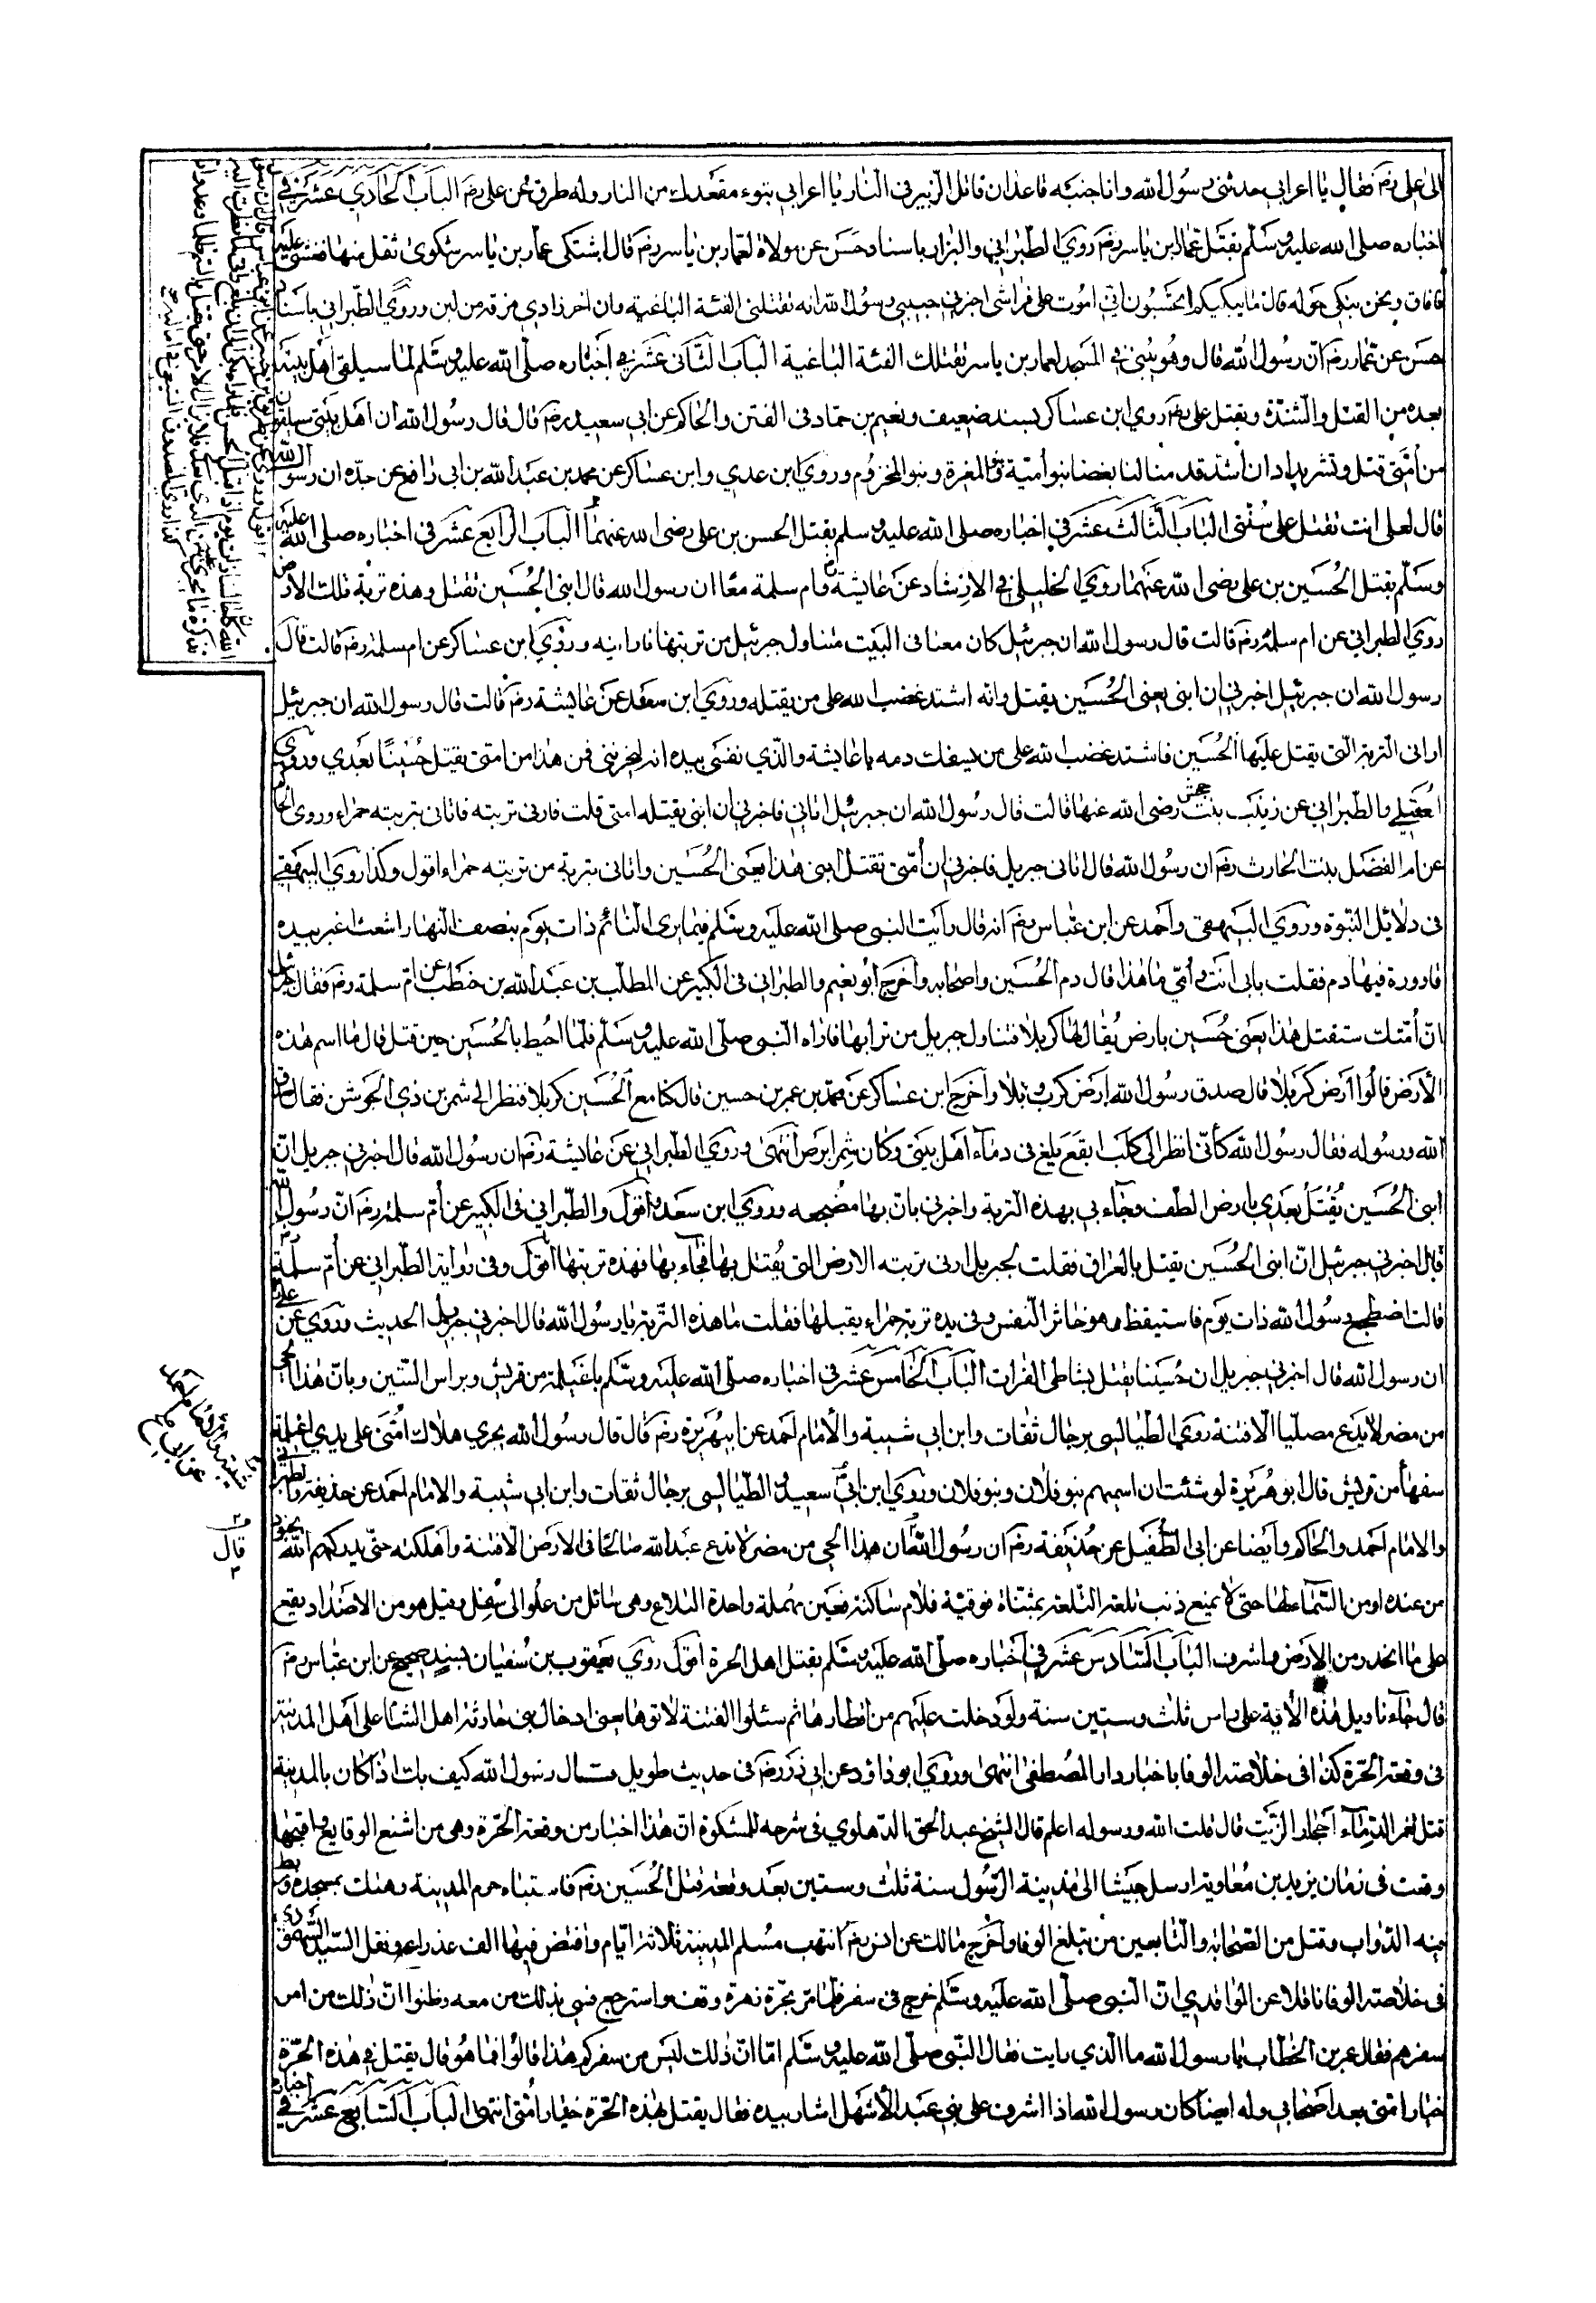 الى علي رضه فقال يا اعرابي حدثني رسول الله وانا جنبه قاعد ان قاتل الزبير في النار يا اعرابي تبوء مقعدك من النار وله طرق عن علي رضه الباب الحادي عشر في
اخباره صلى الله عليه وسلم بقتل عمار بن ياسر رضه روي الطبراني والبزار باسناد حسن عن مولاة لعمار بن ياسر رضه قال اشتكى عمار بن ياسر شكوى ثقل منها فغشي عليه
فافاق ونحن نبكي حوله قال ما يبكيكم اتحسبون اني اموت على فراشي اخبرني حبيبي رسول الله انه تقتلني الفئة الباغية وان اخر زادي مزقة من لبن وروي الطبراني باسناد
حسن عن عمار رضه ان رسول الله قال وهو يبني في المسجد لعمار بن ياسر تقتلك الفئة الباغية الباب الثاني عشر في اخباره صلى الله عليه وسلم لما سيلقى اهل بيته
بعده من القتل والشدة وبقتل علي رضه روي ابن عساكر بسند ضعيف ونعيم بن حماد في الفتن والحاكم عن ابي سعيد رضه قال قال رسول الله ان اهل بيتي سيلقون
من امتي قتل وتشريدا وان اشد قد منا لنا بغضا بنو امية والمغيرة وبنو المخزوم وروي ابن عدي وابن عساكر عن محمد بن عبد الله بن ابي رافع عن جده ان رسول الله
قال لعلي انت تقتل على سنتي الباب الثالث عشر في اخباره صلى الله عليه وسلم بقتل الحسن بن علي رضى الله عنهما الباب الرابع عشر في اخباره صلى الله عليه
وسلم بقتل الحسين بن علي رضى الله عنهما روي الخليلي في الارشاد عن عايشة وام سلمة معا ان رسول الله قال ابني الحسين تقتل وهذه تربة تلك الارض
روي الطبراني عن ام سلمة رضه قالت قال رسول الله ان جبرئيل كان معنا في البيت فتناول جبرئيل من تربتها فارانيه وروي ابن عساكر عن ام سلمة رضه قالت قال
رسول الله ان جبرئيل اخبرني ان ابني يعنى الحسين يقتل وانه اشتد غضب الله على من يقتله وروي ابن سعد عن عايشة رضه قالت قال رسول الله ان جبرئيل
اراني التربة التي يقتل عليها الحسين فاشتد غضب الله على من يسفك دمه يا عايشة والذي نفسى بيده انه ليحزنني فمن هذا من امتي يقتل حسينا بعدي وروي
العقيلي والطبراني عن زينب بنت جحش رضى الله عنها قالت قال رسول الله ان جبرئيل اتاني فاخبرني ان ابني يقتله امتي قلت فارني تربته فاتاني بتربته حمراء وروى الحاكم
عن ام الفضل بنت الحارث رضه ان رسول الله قال اتاني جبريل فاخبرني ان امتي تقتل ابني هذا يعنى الحسين واتاني بتربة من تربته حمراء اقول وكذا روي البيهقي
في دلائل النبوة وروي البيهقي واحمد عن ابن عباس رضه انه قال رأيت النبي صلى الله عليه وسلم فيما يرى النائم ذات يوم بنصف النهار اشعث اغبر بيده
قارورة فيها دم فقلت بابي انت وامي ما هذا قال دم الحسين واصحابه واخرج ابو نعيم والطبراني في الكبير عن المطلب بن عبد الله بن حنطب عن ام سلمة رضه فقال جبرئيل
ان امتك ستقتل هذا يعني حسين بارض يقال لها كربلا فتناول جبريل من ترابها فاراه النبي صلى الله عليه وسلم فلما احيط بالحسين حين قتل قال ما اسم هذه
الارض قالوا ارض كربلا قال صدق رسول الله ارض كرب وبلا واخرج ابن عساكر عن محمد بن عمر بن حسين قال كنا مع الحسين كربلا فنظر الى شمر بن ذي الجوشن فقال صدق
الله ورسوله فقال رسول الله كأني انظر الى كلب ابقع يلغ في دماء اهل بيتي وكان شمر ابرص انتهى وروي الطبراني عن عايشة رضه ان رسول الله قال اخبرني جبريل ان
ابني الحسين يقتل بعدي بارض الطف وجاءني بهذه التربة واخبرني بان بها مضجعه وروي ابن سعد اقول والطبراني في الكبير عن ام سلمة رضه ان رسول الله
قال اخبرني جبرئيل ان ابني الحسين يقتل بالعراق فقلت لجبريل ارني تربته الارض التي يقتل بها فجاء بها فهذه تربتها اقول وفي رواية الطبراني عن ام سلمة رضه
قالت اضطجع رسول الله ذات يوم فاستيقظ وهو خاثر النفس وفي يده تربة حمراء يقبلها فقلت ما هذه التربة يا رسول الله قال اخبرني جبريل الحديث وروي عن علي
ان رسول الله قال اخبرني جبريل ان حسينا يقتل بشاطي الفرات الباب الخامس عشر في اخباره صلى الله عليه وسلم باغيلمة من قريش وبراس الستين وبان هذا الحي
من مضر لا يدع مصليا الا فتنه روي الطيالسي برجال ثقات وابن ابي شيبة والامام احمد عن ابي هريرة رضه قال قال رسول الله يجري هلاك امتي على يدي اغيلمة
سفهاء من قريش قال ابو هريرة لو شئت ان اسميهم بنو فلان وبنو فلان وروي ابن ابي سعيد والطيالسي برجال ثقات وابن ابي شيبة والامام احمد عن حذيفة والطبراني
والامام احمد والحاكم وايضا عن ابي الطفيل عن حذيفة رضه ان رسول الله قال ان هذا الحي من مضر لا تدع عبد الله صالحا في الارض الا فتنته واهلكته حتى يدركهم الله بجنود
من عنده او من السماء لها حتى لا يمنع ذنب تلعة التلعة بمثناة فوقية فلام ساكنة فعين مهملة واحدة التلاع وهي سائل من علو الى سفل وقيل هو من الاضداد يقع
على ما انحدر من الارض واشرف الباب السادس عشر في اخباره صلى الله عليه وسلم بقتل اهل الحرة اقول روي يعقوب بن سفيان بسند صحيح عن ابن عباس رضه
قال جاء تاويل هذه الاية على راس ثلث وستين سنة ولو دخلت عليهم من اقطارها ثم سئلوا الفتنة لاتوها يعني ادخال بني حارثة اهل الشام على اهل المدينة
في وقعة الحرة كذا في خلاصة الوفا باخبار دار المصطفى انتهى وروي ابو داود عن ابي ذر رضه في حديث طويل قال رسول الله كيف بك اذا كان بالمدينة
قتل تغمر الدماء احجار الزيت قال قلت الله ورسوله اعلم قال الشيخ عبد الحق الدهلوي في شرحه للمشكوة ان هذا اخبار من وقعة الحرة وهي من اشنع الوقايع واقبحها
وقعت في زمان يزيد بن معاوية ارسل جيشا الى مدينة الرسول سنة ثلث وستين بعد وقعة قتل الحسين رضه فاستباه حرم المدينة وهتك بمسجده وربط
فيه الدواب وقتل من الصحابة والتابعين من تبلغ الوفا واخرج مالك عن انس رضه انتهب مسلم المدينة ثلاثة ايام وافتض فيها الف عذراء ونقل السيد السمهودي
في خلاصة الوفا ناقلا عن الواقدي ان النبي صلى الله عليه وسلم خرج في سفر فلما مر بحرة زهرة وقف واسترجع فسيء بذلك من معه وظنوا ان ذلك من امر
سفرهم فقال عمر بن الخطاب يا رسول الله ما الذي رايت فقال النبي صلى الله عليه وسلم اما ان ذلك ليس من سفركم هذا قالوا فما هو قال يقتل في هذه الحرة
خيار امتي بعد اصحابي وله ايضا كان رسول الله اذا اشرف على بني عبد الاشهل اشار بيده فقال يقتل بهذه الحرة خيار امتي انتهى الباب السابع عشر في اخباره
قال